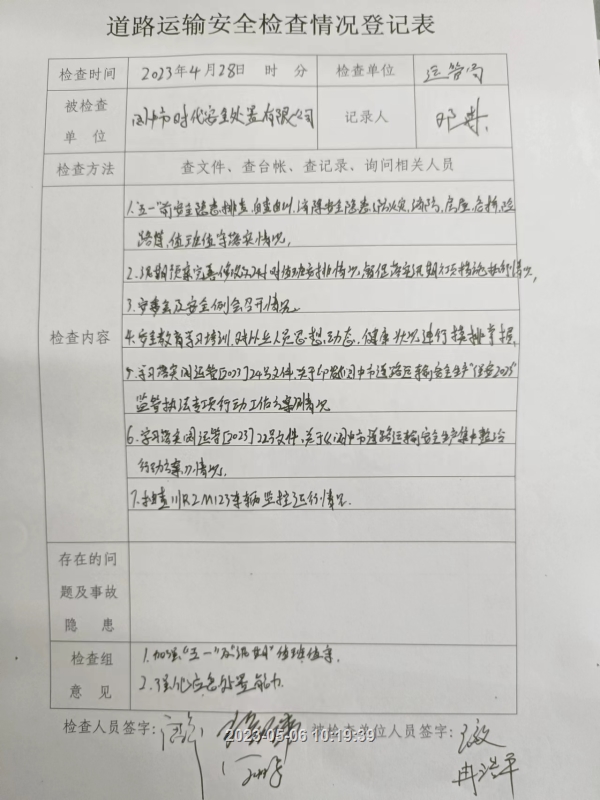 道路运输安全检查情况登记表
检查时间 2023年4月28日 时 分 检查单位 运管局
被检查单位 阆中市时代 处置有限公司 记录人
检查方法 查文件、查台帐、查记录、询问相关人员
检查内容
1."五一"前安全隐患排查,自查自纠,
路等,值班值守落实情况,
2.汛期预案完善修改
3.安委会及安全例会召开情况。
4.安全教育学习培训,对从业人员思想,动态,健康状况进行摸排掌握。
5.学习落实阆运管[2023]24号文件,关于印发《阆中市道路运输安全生产
监管执法专项行动工作方案》情况
6.学习落实阆运管[2023]22号文件,关于《阆中市道路运输安全生产集中整治
行动方案》情况,
7.抽查川R2M123车辆监控运行情况.
存在的问题及事故隐患
检查组意见
1.加强"五一"及"汛期"值班值守.
2.强化应急处置能力.
检查人员签字: 被检查单位人员签字:
2023-05-06 10:19:39